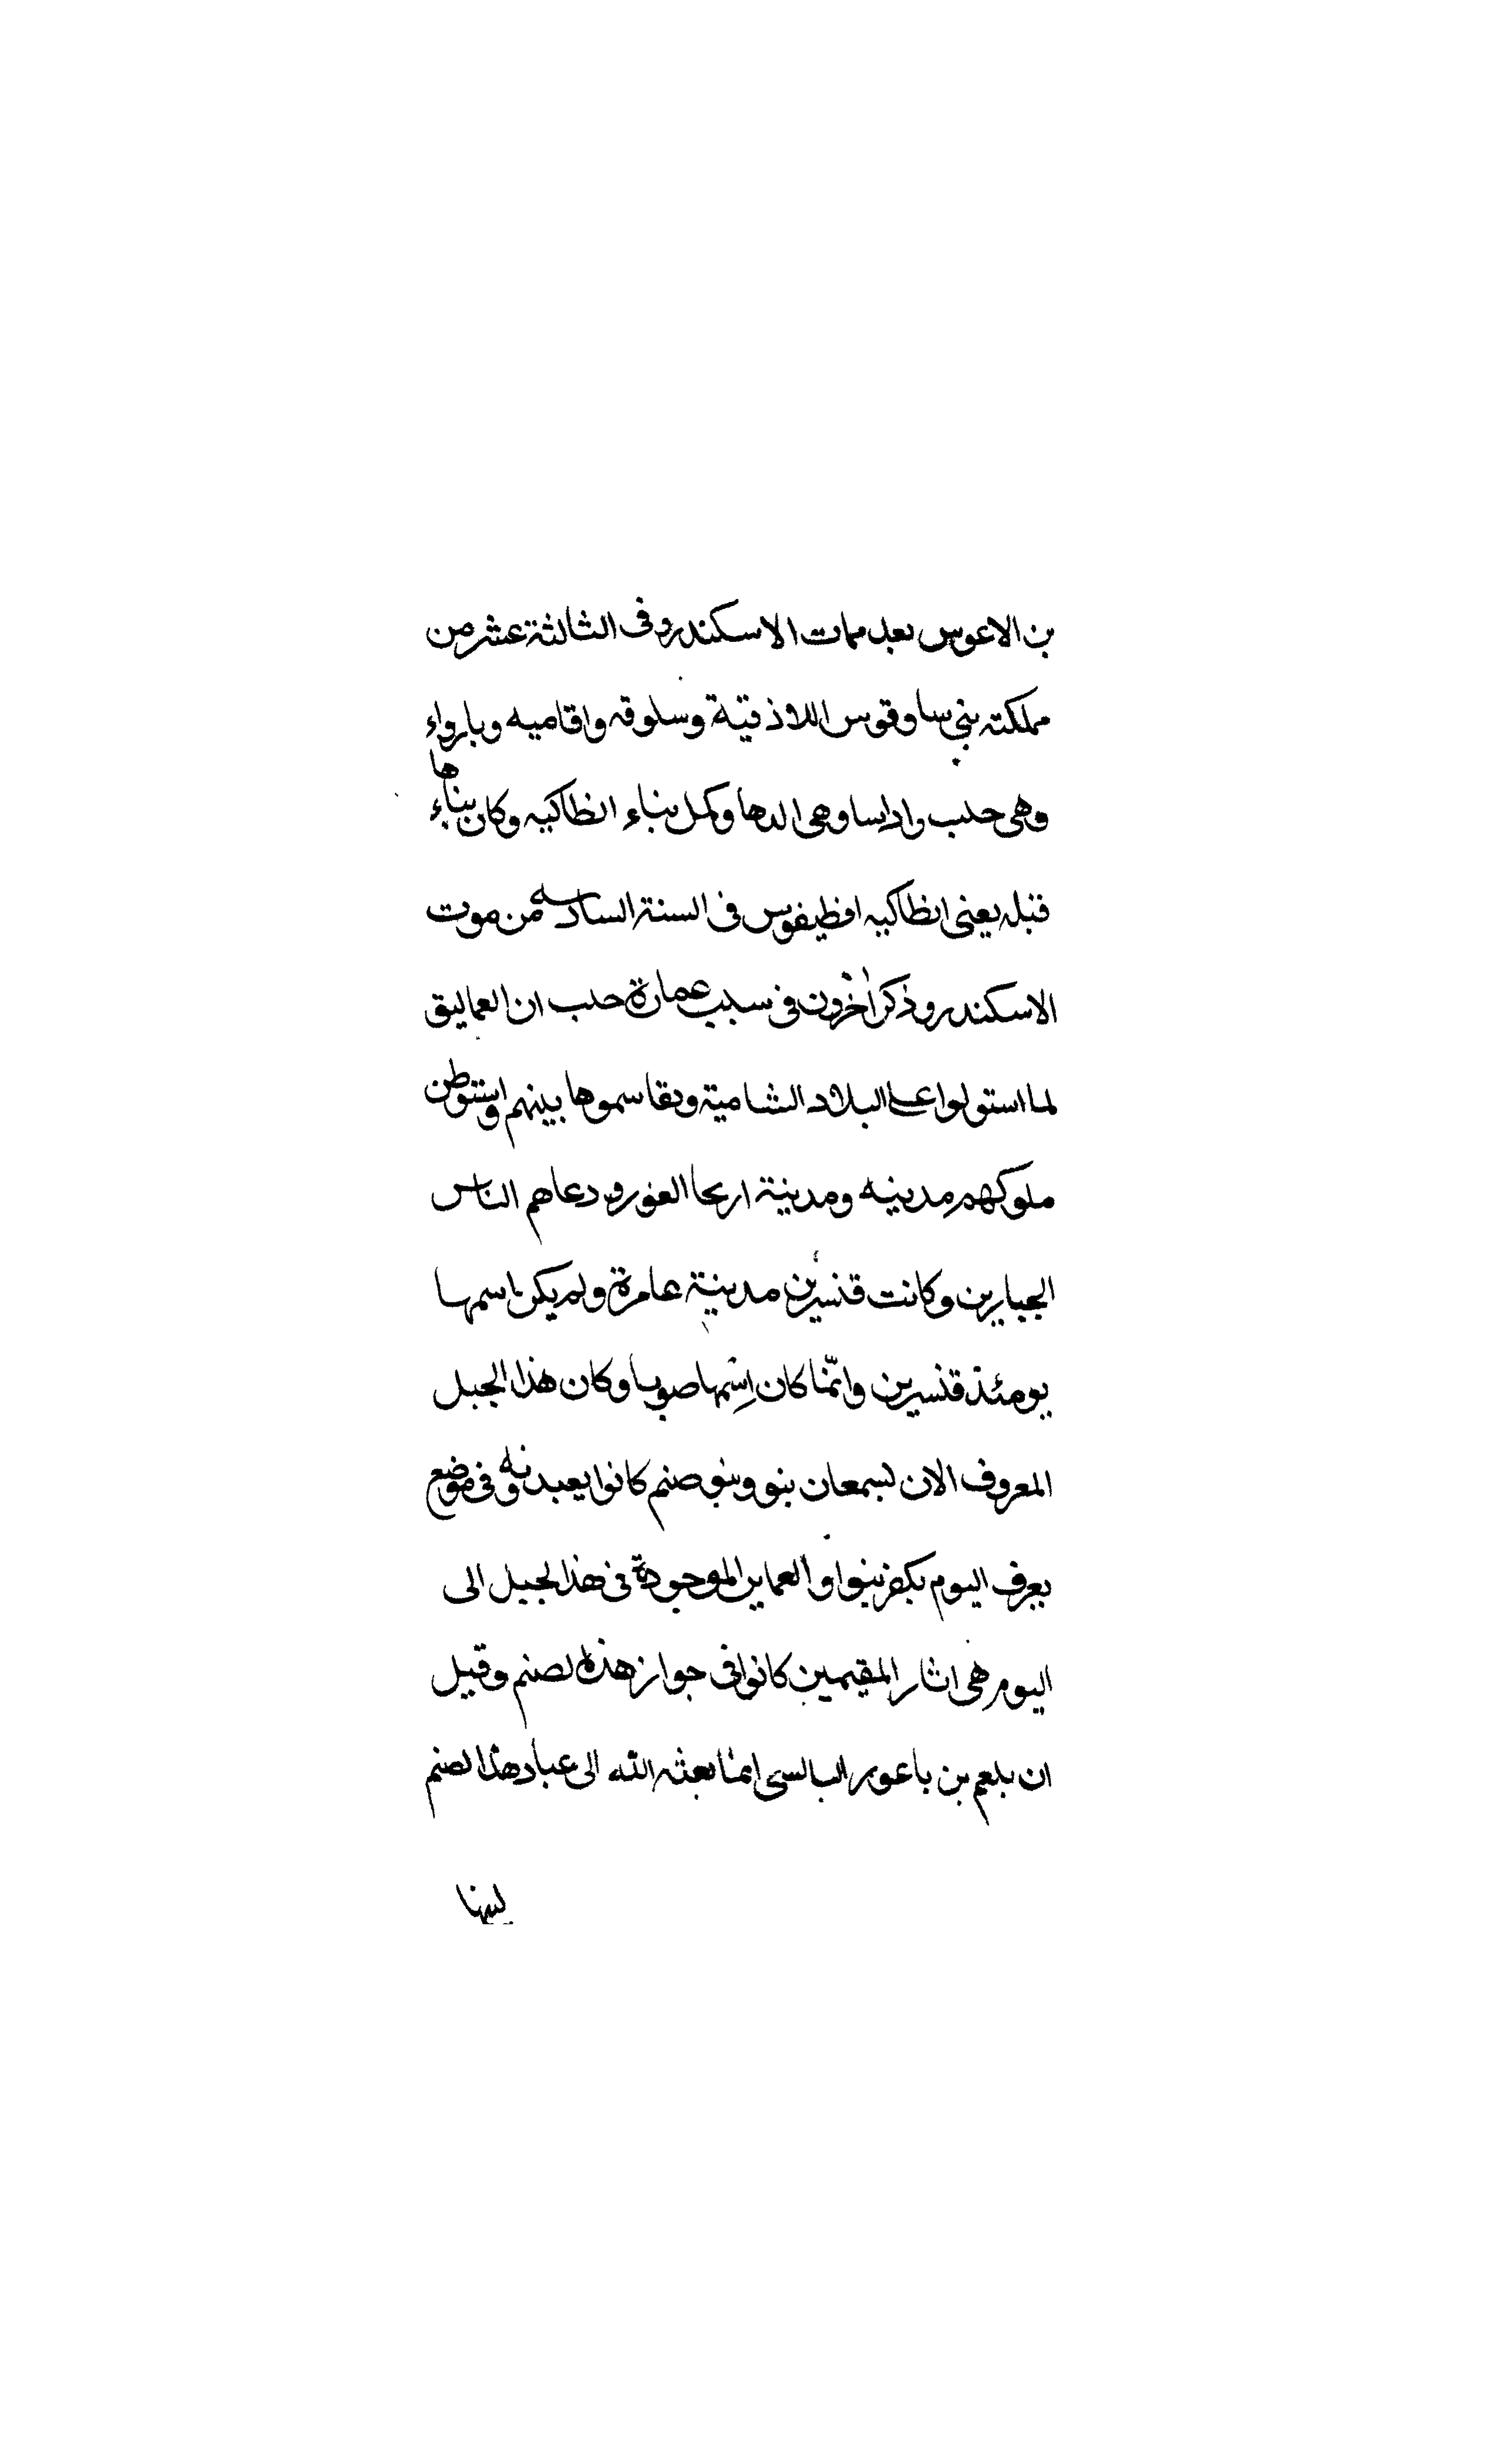 بن الاعوس بعد ممات الاسكندر وفى الثالثة عشر من
مملكته بنى ساوقوس اللاذقية وسلوقه وافاميه وبارواء
وهى حلب واداسا وهى الدها وكمل بناء انطاكيه وكان بناءها
قبله يعنى انطاكيه افطيفوس فى السنة السادسه من موت
الاسكندر وذكر اخرون فى سبب عمارة حلب ان العماليق
لما استولوا على البلاد الشامية وتقاسموها بينهم استوطن
ملوكهم مدينه ومدينة اريحا الغور ودعاهم الناس
الجبارين وكانت قنسرين مدينة عامرة ولم يكن اسمها
يومئذ قنسرين وانّما كان اسمها صوبا وكان هذا الجبل
المعروف الان لسمعان بنو وبنو صنم كانوا يعبدونه وفى موضع
يعرف اليوم بكفر بنوا والعماير الموجودة فى هذا لجبل الى
اليوم هى اثار المقيمين كانوا فى جوار هذه لصنم وقيل
ان بلعم بن باعور البالسى انما بعثه الله الى عباد هذا لصنم
لينها